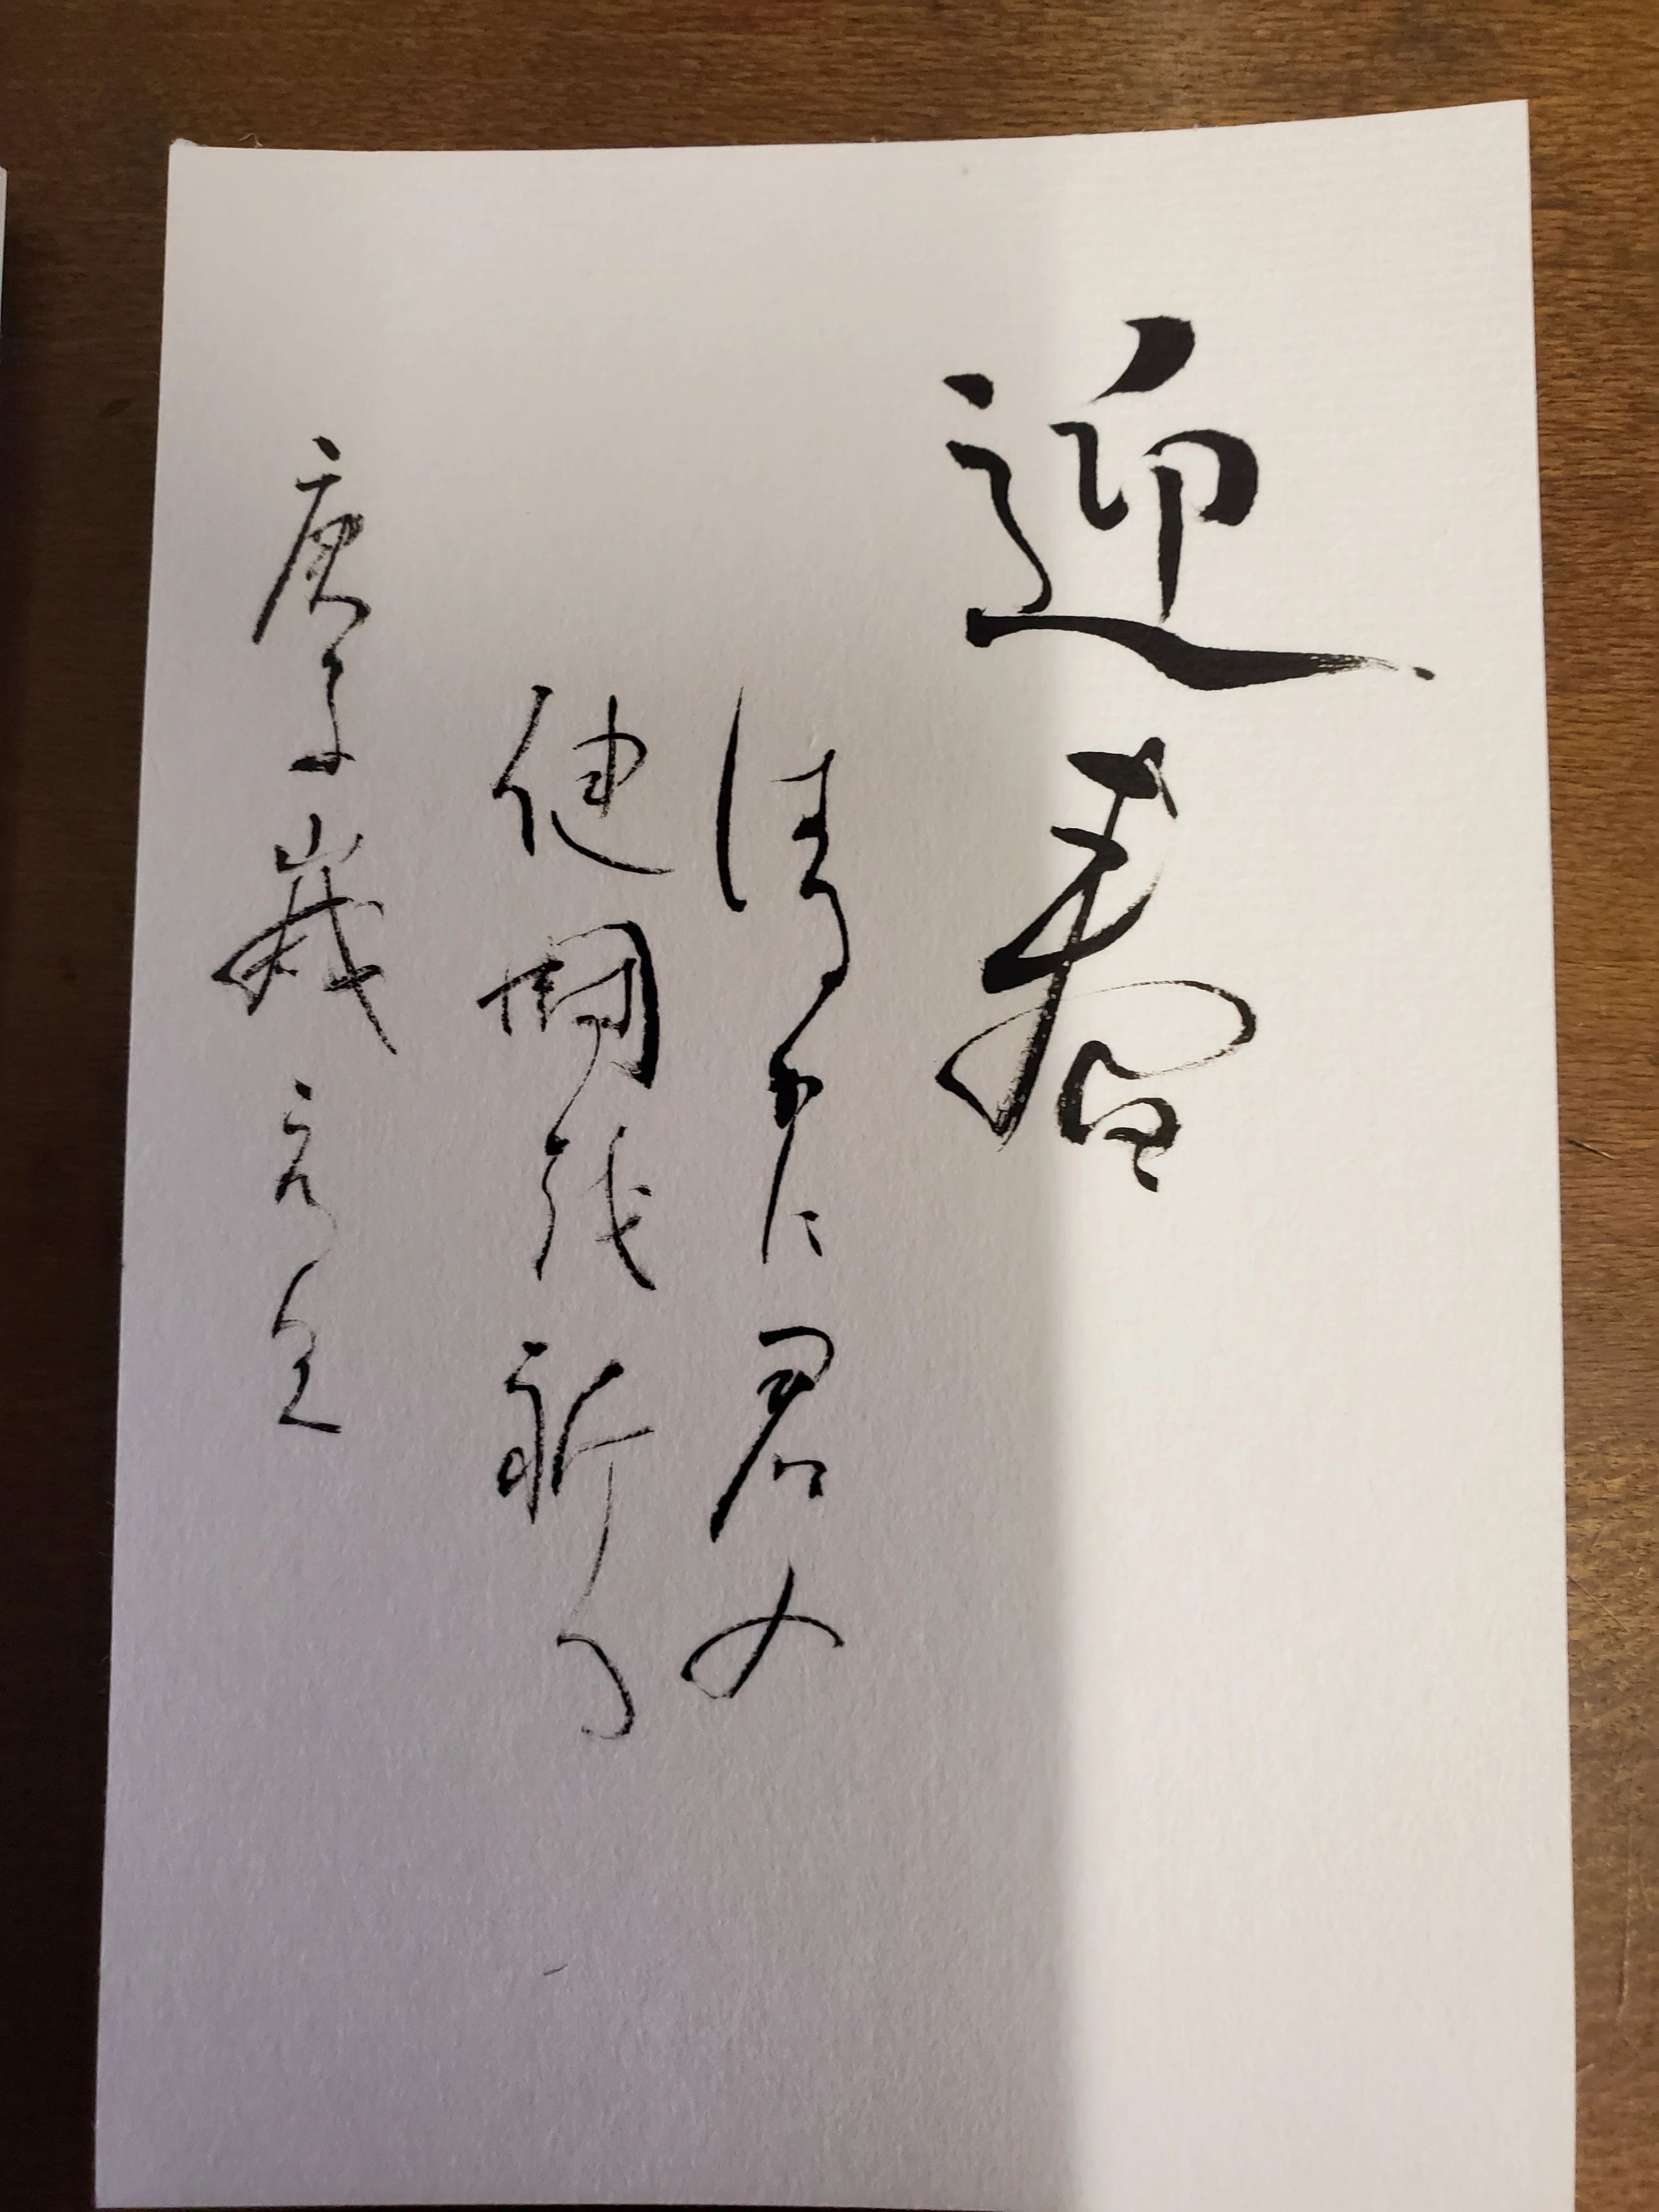 迎春
はるかに君の
健闘を祈り
庚子歳元旦